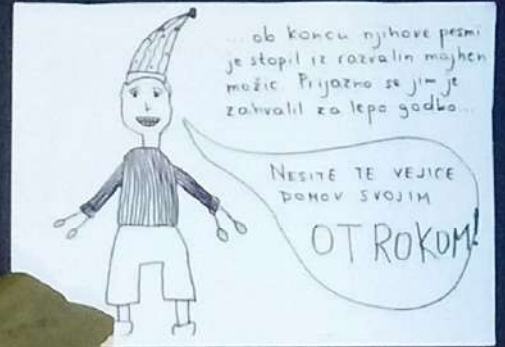 ... ob koncu njihove pesmi
je stopil iz razvalin majhen
možic. Prijazno se jim je
zahvalil za lepo godbo...
NESITE TE VEJICE
DOMOV SVOJIM
OTROKOM!